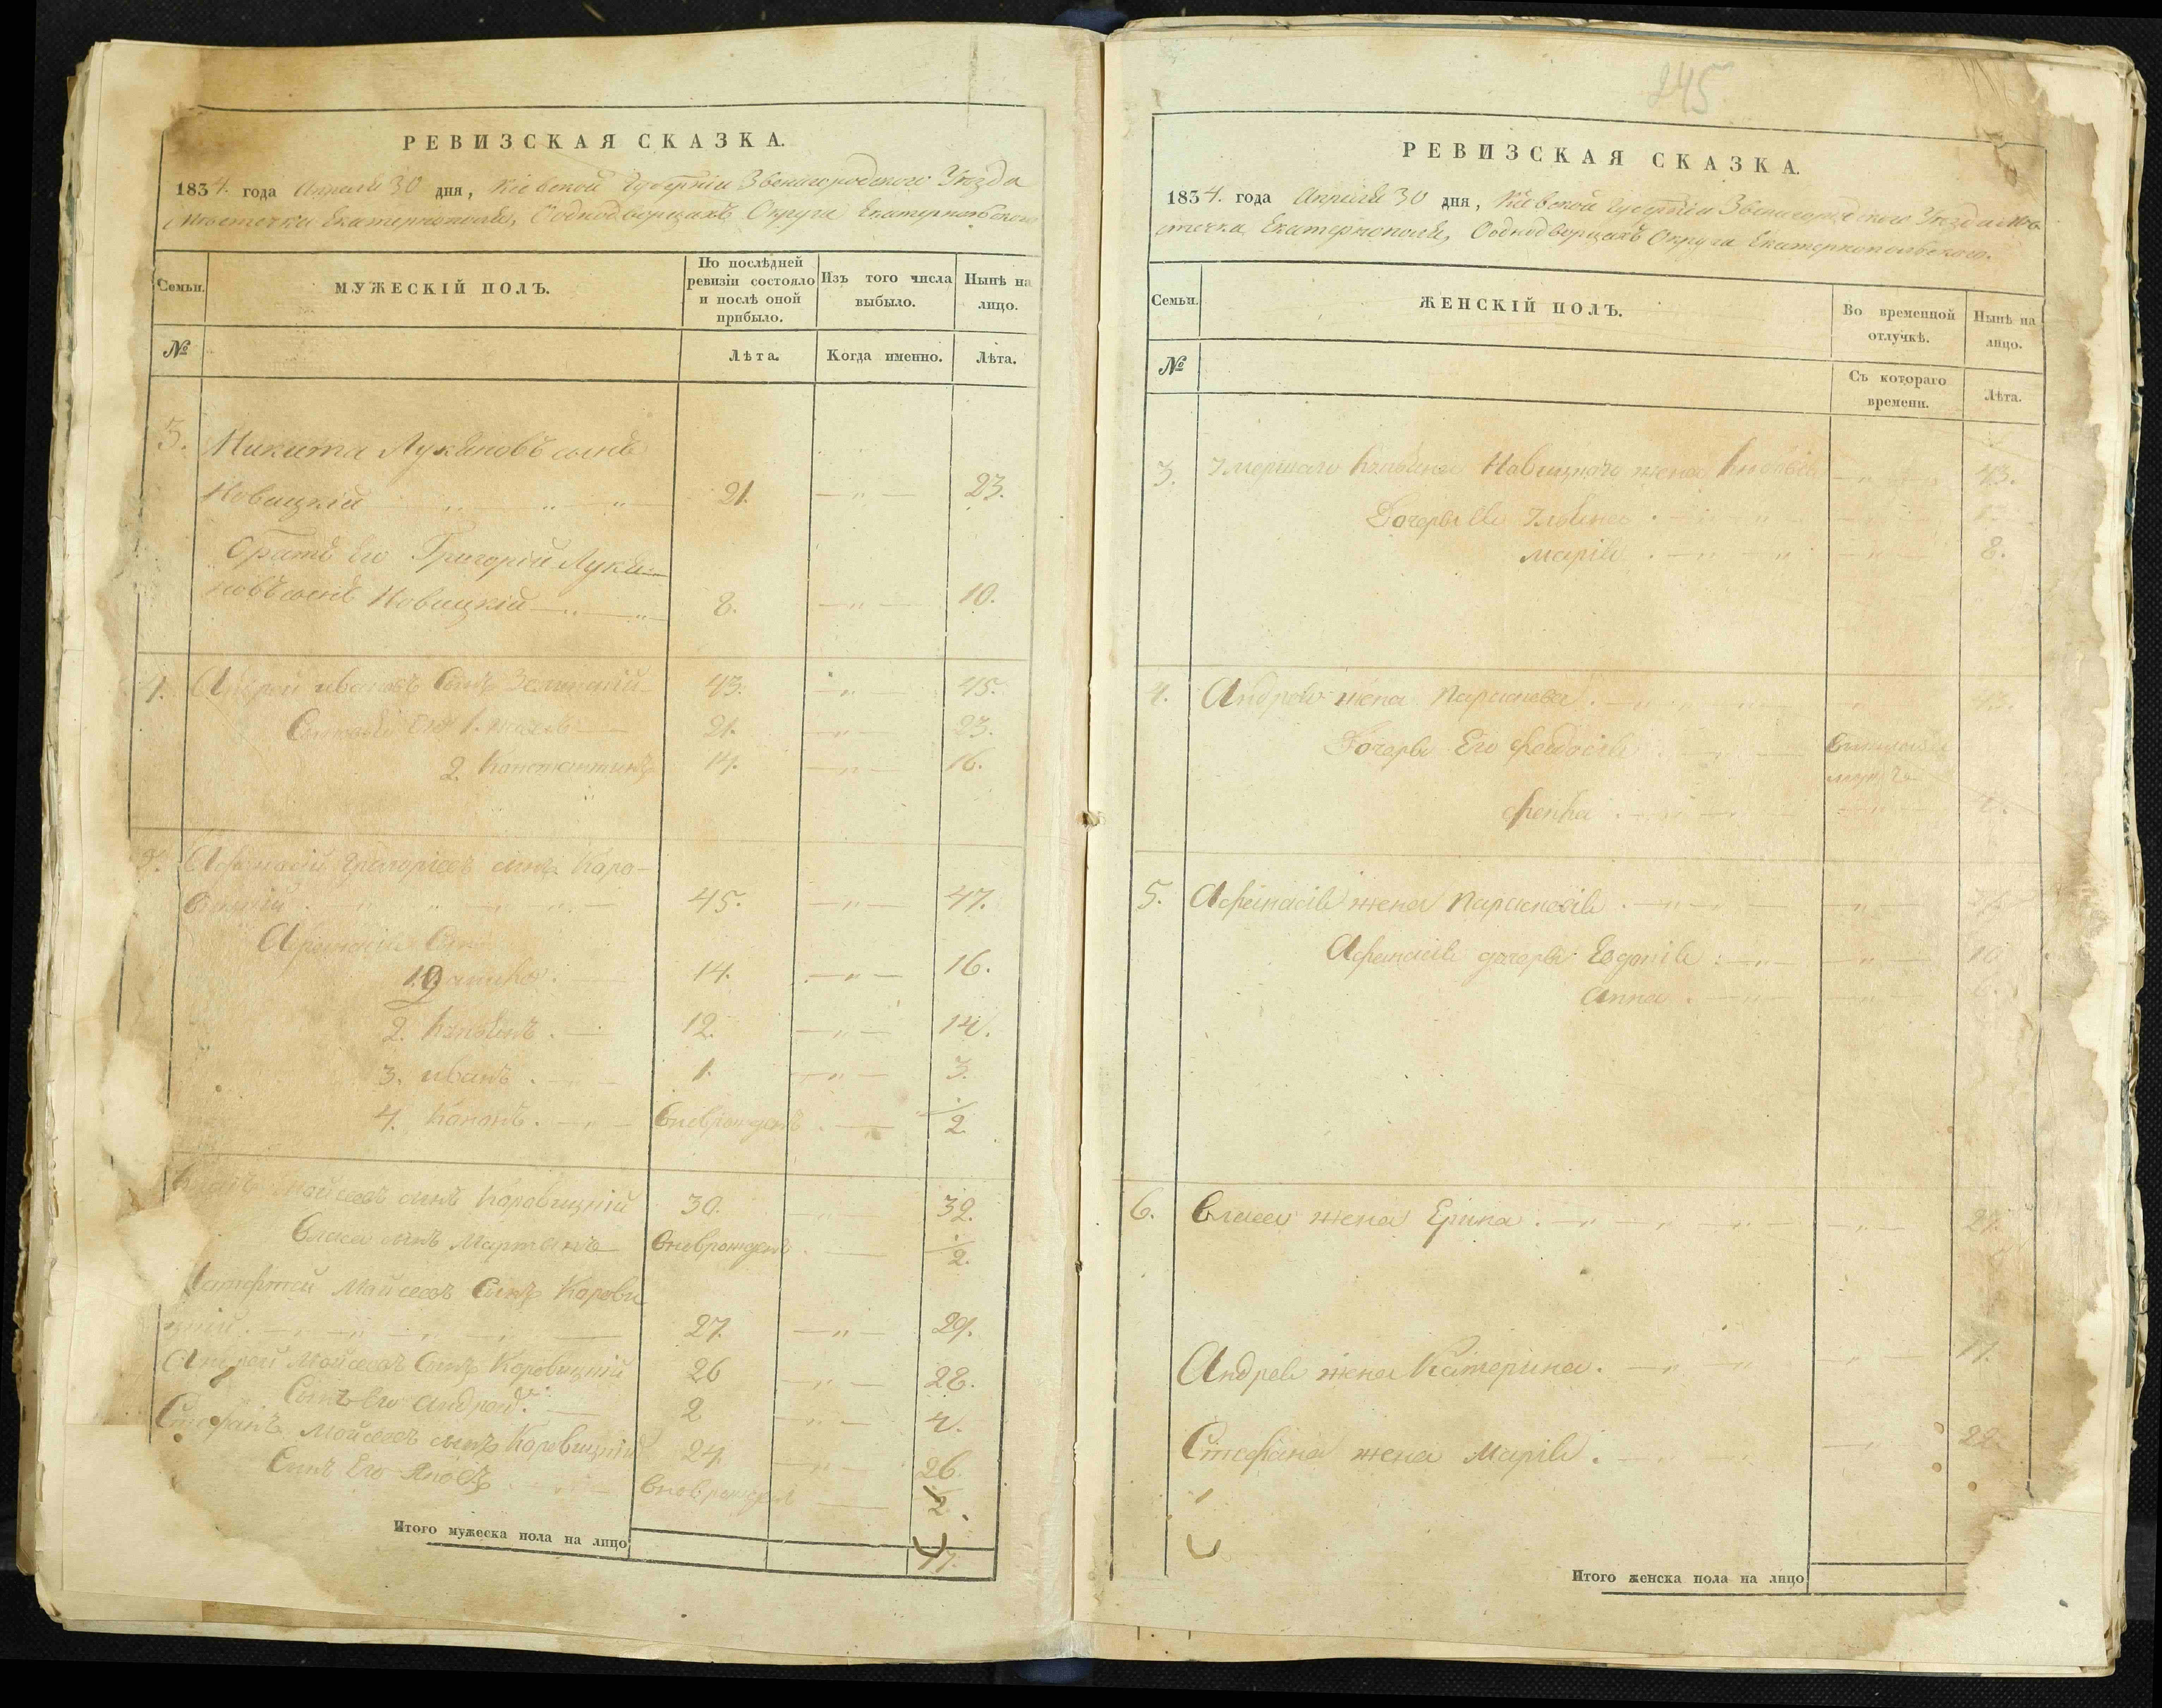 РЕВИЗСКАЯ СКАЗКА.
1834. года Апреля 30 дня, Кіевской Губерніи Звенигородского Уезда
Местечка Екатеринополя, Ооднодворцахъ Округа Екатеринопольского
Семьи. МУЖЕСКІЙ ПОЛЪ. По послѣдней ревизіи состояло и послѣ оной прибыло. Изъ того числа выбыло. Нынѣ на лицо.
№ Лѣта. Когда именно. Лѣта.
3. Никита Лукяновъ сынъ
Новицкій 21. 23.
братъ Его Григорій Лукя-
новъ сынъ Новицкій 8. 10.
4. Андрей ивановъ Сынъ 43. 45.
Его 1. 21. 23.
2. Константинъ 14. 16.
5. Афанасій Григоріевъ сынъ Каро-
вицкій 45. 47.
Афанасія
1. 14. 16.
2. 12. 14.
3. иванъ 1. 3.
4. Кононъ вноврожденъ 1/2
Мойсеевъ сынъ Каравицкій 30. 32.
Власа сынъ Мартынъ вноврожденъ 1/2.
Мойсеевъ Сынъ Корови
цкій 27. 29.
Андрей Мойсеевъ Сынъ Коровицкій 26 28.
Сынъ Его Андрей 2 4.
Стефанъ Мойсеевъ сынъ Коровицкій 24. 26.
Сынъ Его Яковъ вноврожденъ 1/2.
Итого мужеска пола на лицо 17.
245
РЕВИЗСКАЯ СКАЗКА.
1834. года Апреля 30 дня, Кіевской Губерніи Звенигородского Уезда Ме
стечка Екатеринополя, Ооднодворцахъ Округа Екатеринопольского.
Семьи. ЖЕНСКІЙ ПОЛЪ. Во временной отлучкѣ. Нынѣ на лицо.
№ Съ котораго времени. Лѣта.
3. Умершаго Новицкаго жена 43.
Дочеры
Марія 8.
4. Андрея жена Параскева 43.
Дочеры Его Феодосія
5. Афанасія жена Параскевія
Афанасія дочеры Евдокія 10
Анна 6.
6. Власа жена Ерина
Андрея жена Катерина. 17.
Стефана жена Марія. 22.
Итого женска пола на лицо